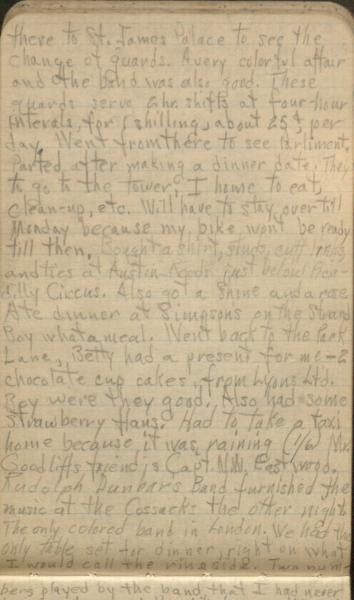 there to St. James Palace to see the
change of guards. A very colorful affair
and the band was also good. These
guards serve 2 hr. shifts at four-hour
intervals, for 1 shilling, about 25¢, per
day. Went from there to see Parliment.
Parted after making a dinner date. They
to go to the Tower, I home to eat,
clean-up, etc. Will have to stay over till
Monday because my bike won't be ready
till then. Bought a shirt, studs, cuff links,
and ties at Austin Reeds just below Picca-
dilly Circus. Also got a shine and a rose
Ate dinner at Simpsons on the Strand
Boy what a meal. Went back to the Park
Lane, Betty had a present for me - 2
chocolate cup cakes, from Lyons Ltd.
Boy were they good. Also had some
Strawberry flans. Had to take a taxi
home because it was raining (1/6) Mr.
Goodliffs friend is Capt. N.W. Eastwood.
Rudolph Dunbars Band furnished the
music at the Cossacks the other night.
The only colored band in London. We had the
only table set for dinner, right on what
I would call the ringside. Two num-
bers played by the band, that I had never